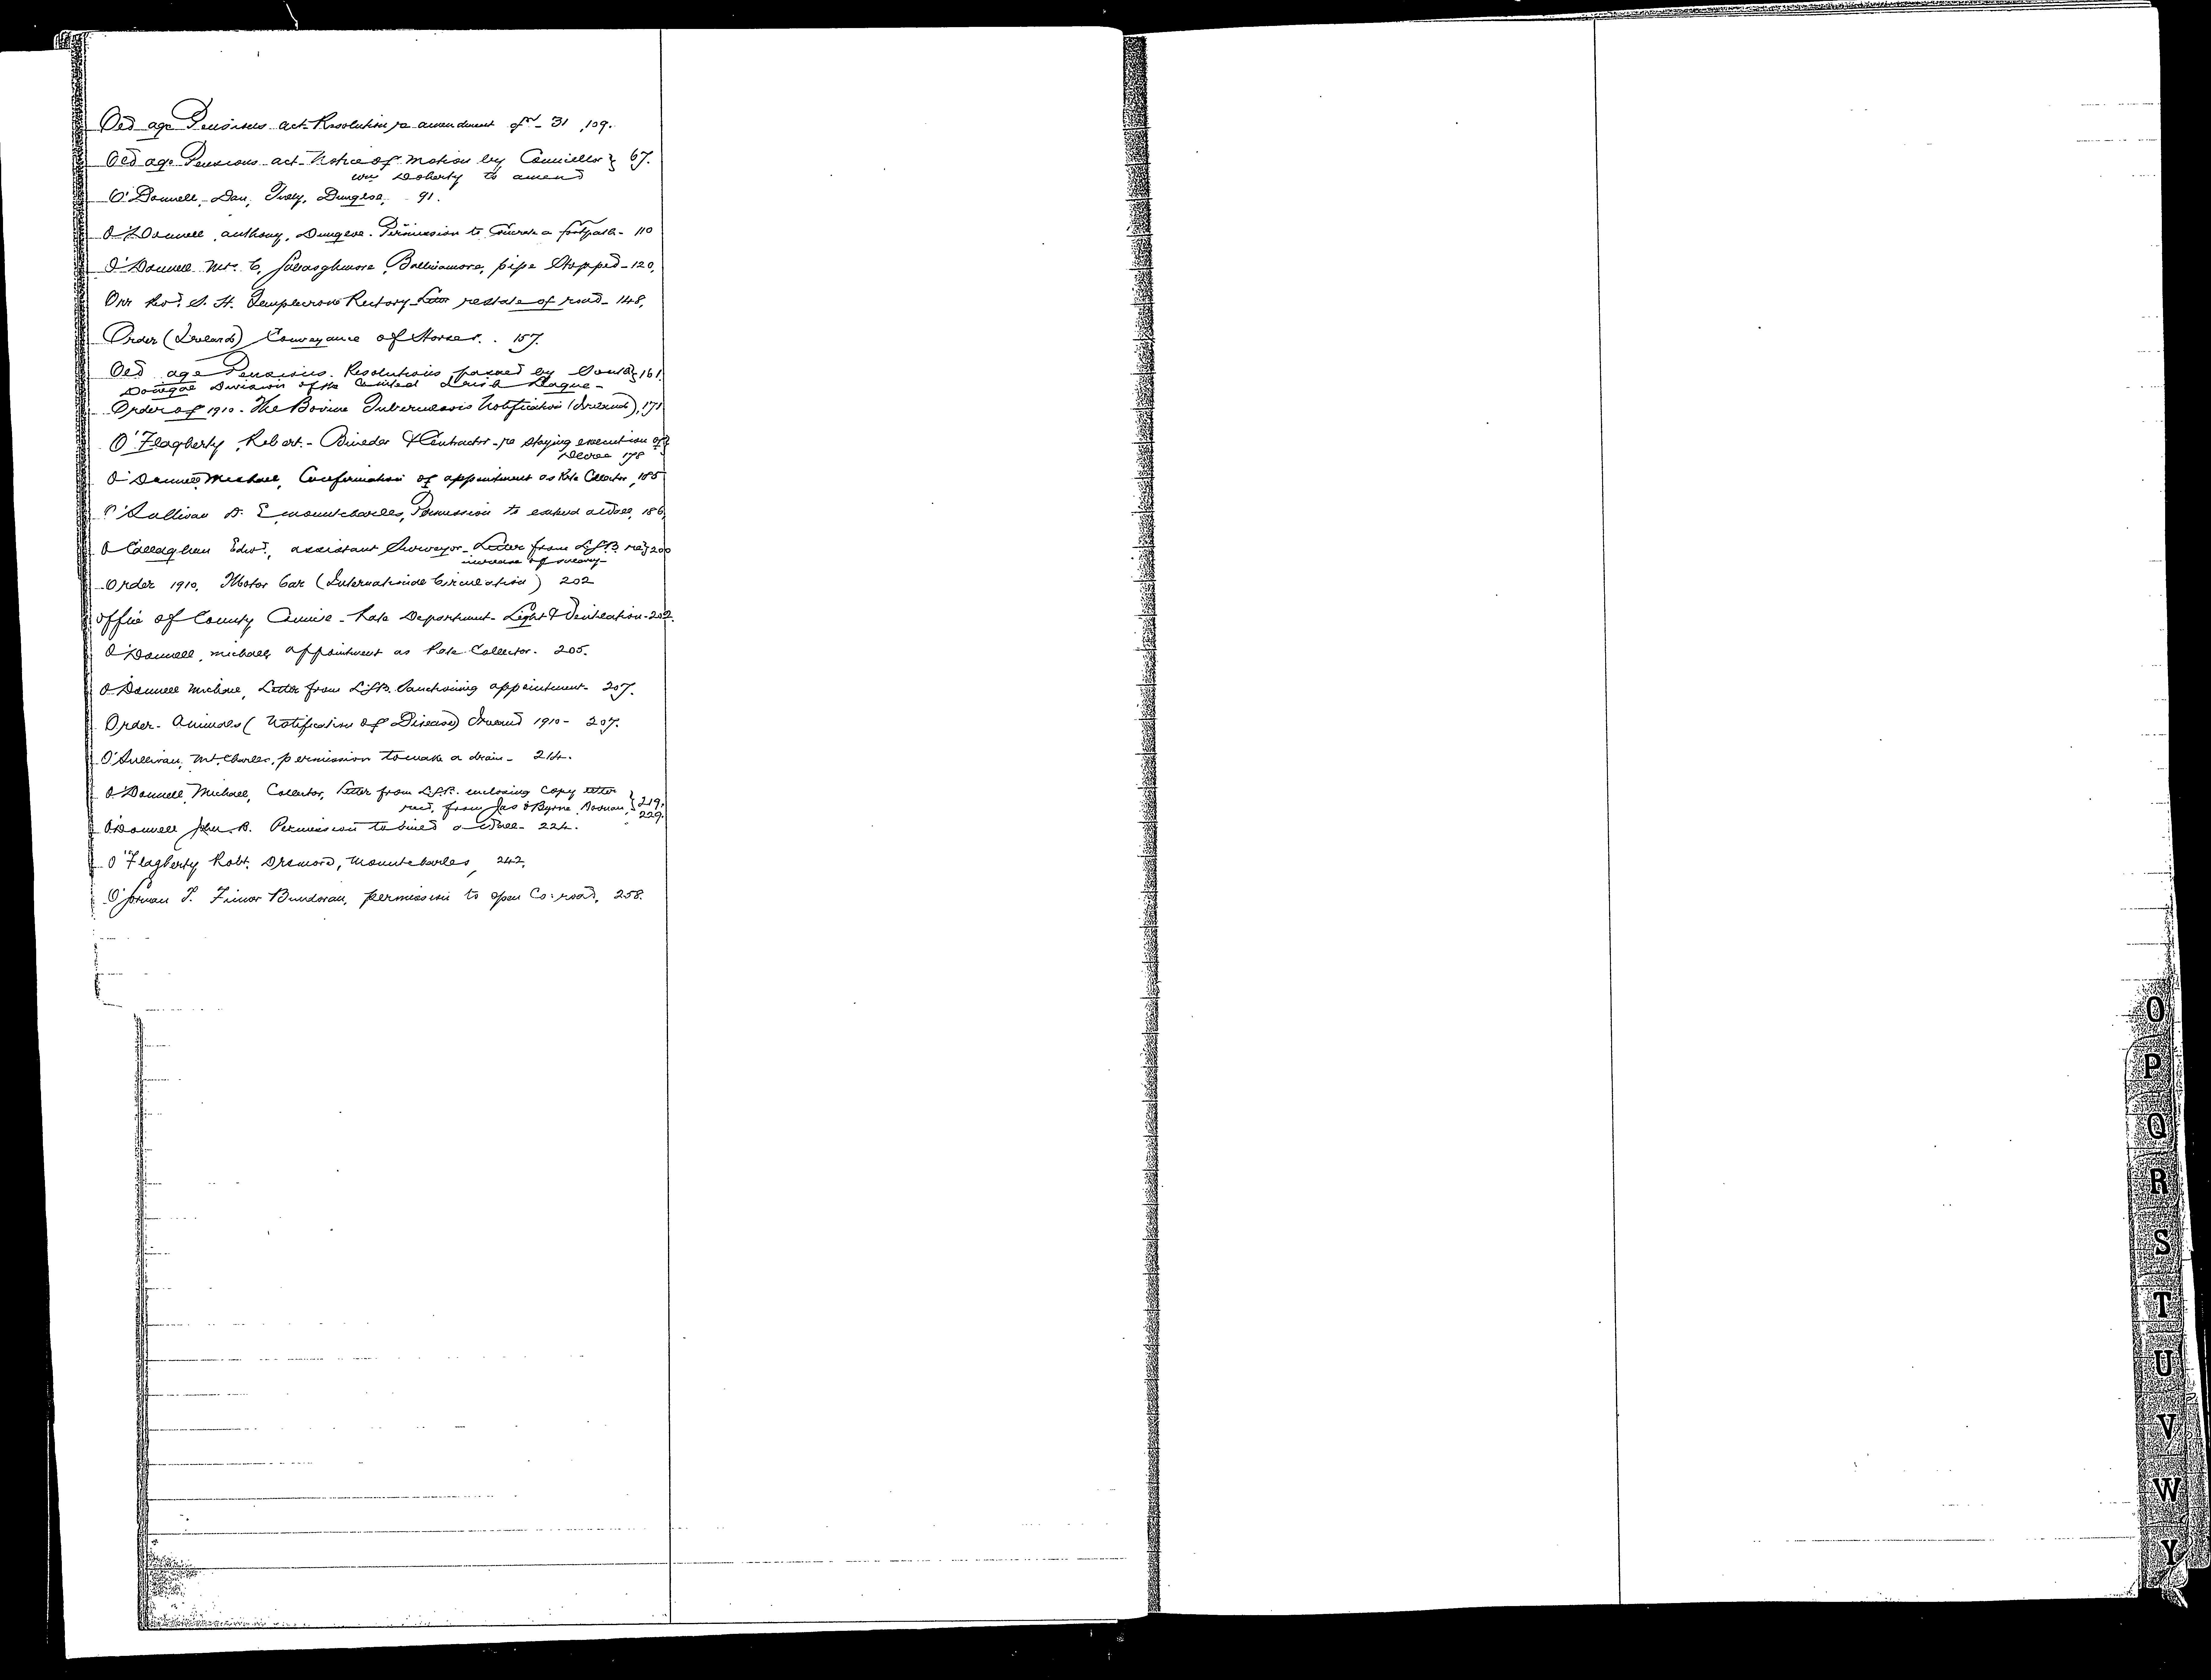 Old age Pensions act - Resolution re amendment of - 31, 109.
Old age Pensions act - Notice of Motion by Councillor } 67.
Wm Doherty to amend
O'Donnell, Dan, Dungloe, 91.
O'Donnell, Anthony, Dungloe. Permission to Concrete a footpath - 110
O'Donnell Mrs. C. Ballinamore, pipe Stopped - 120.
Orr Revd. S. H. Templecrone Rectory - Letter re state of road - 148.
Order (Ireland) Conveyance of Horses. . 157.
Old age Pensions. Resolutions passed by South } 161.
Donegal Division of the United Irish League -
Order of 1910 - The Bovine Tuberculosis Notification (Ireland), 171
O'Flagherty, Robert. - Builder & Contractor - re staying execution of }
Decree 178
O'Donnell Michael, Confirmation of appointment as Rate Collector, 185
O'Sullivan D. E. Mountcharles, Permission to extend a wall, 186,
O'Callaghan Edwd., assistant Surveyor - Letter from L.G.B. re } 200
increase of salary -
Order 1910, Motor Car (International Circulation) 202
Office of County Council - Rate Department - Light & Ventilation - 202.
O'Donnell, Michael, appointment as Rate Collector. 205.
O'Donnell Michael, Letter from L.G.B. Sanctioning appointment - 207.
Order - Animals (Notification of Disease) Ireland 1910 - 207.
O'Sullivan, Mt. Charles, permission to make a drain - 214.
O'Donnell, Michael, Collector, Letter from L.G.B. enclosing Copy letter
recd. from Jas O'Byrne } 219,
229.
O'Donnell John B. Permission to build a wall - 224.
O'Flagherty Robt. Drumore, Mountcharles, 242.
O'Gorman T. Finner Bundoran, permission to open Co: road, 258.
O
P
Q
R
S
T
U
V
W
Y